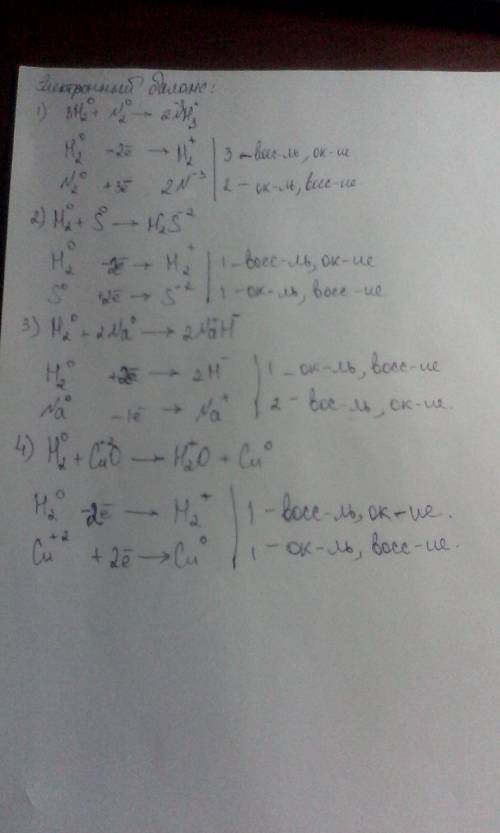 Электронный баланс:
1) 3H₂⁰ + N₂⁰ → 2N⁻³H₃⁺
H₂⁰ -2ē → H₂⁺ | 3 - восс-ль, ок-ие
N₂⁰ +3ē 2N⁻³ | 2 - ок-ль, восс-ие
2) H₂⁰ + S⁰ → H₂S⁻²
H₂⁰ -2ē → H₂⁺ | 1 - восс-ль, ок-ие
S⁰ +2ē → S⁻² | 1 - ок-ль, восс-ие
3) H₂⁰ + 2Na⁰ → 2Na⁺H⁻
H₂⁰ +2ē → 2H⁻ | 1 - ок-ль, восс-ие
Na⁰ -1ē → Na⁺ | 2 - вос-ль, ок-ие.
4) H₂⁰ + Cu⁺²O → H₂⁺O + Cu⁰
H₂⁰ -2ē → H₂⁺ | 1 - восс-ль, ок-ие.
Cu⁺² + 2ē → Cu⁰ | 1 - ок-ль, восс-ие.